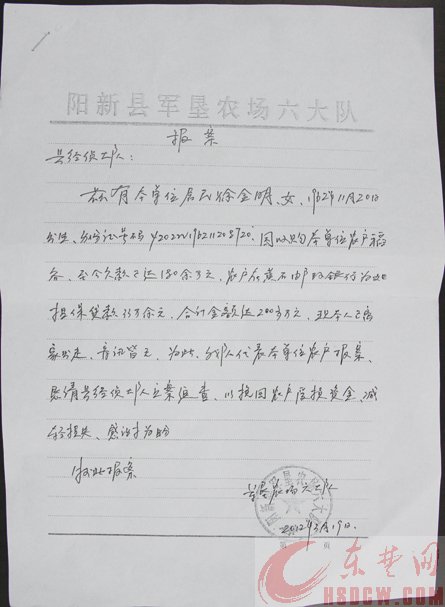 阳新县军垦农场六大队
报案
县经侦大队:
兹有本单位居民徐金明、女、1962年11月20日
出生、身份证号码 因收购本单位农户稻
谷、至今欠款已达180余万元,农户在黄石市邮政银行为她
担保贷款33万余元,合计金额达200多万元,现本人已离
家出走、音讯皆无,为此、我队代表本单位农户报案、
恳请县经侦大队立案侦查、以挽回农户应损资金、减
轻损失、感谢为盼
特此报案
军垦农场六大队
2012年3月19日.
页
东楚网
HSDCW.COM